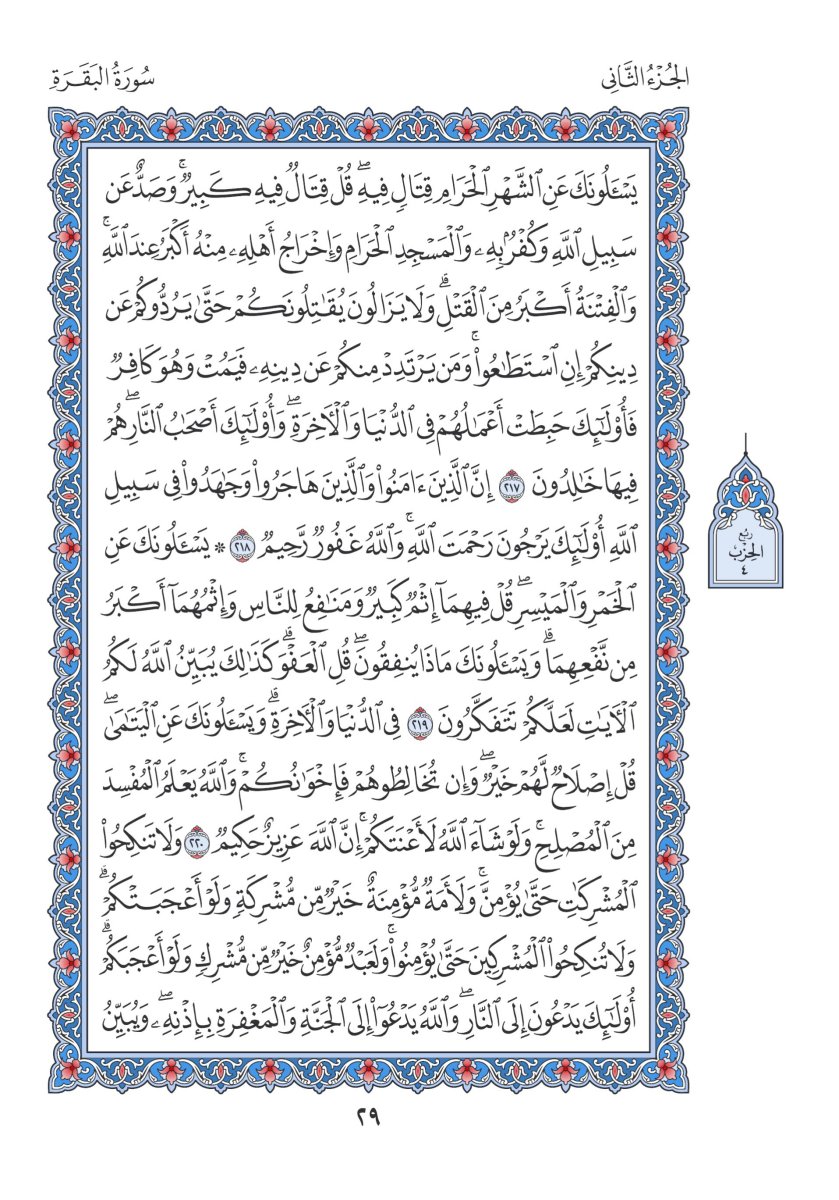 الجُزْءُ الثَّانِى
سُورَةُ البَقَرَةِ
يَسْـَٔلُونَكَ عَنِ ٱلشَّهْرِ ٱلْحَرَامِ قِتَالٍ فِيهِۖ قُلْ قِتَالٌ فِيهِ كَبِيرٌۚ وَصَدٌّ عَن
سَبِيلِ ٱللَّهِ وَكُفْرٌۢ بِهِۦ وَٱلْمَسْجِدِ ٱلْحَرَامِ وَإِخْرَاجُ أَهْلِهِۦ مِنْهُ أَكْبَرُ عِندَ ٱللَّهِۚ
وَٱلْفِتْنَةُ أَكْبَرُ مِنَ ٱلْقَتْلِۗ وَلَا يَزَالُونَ يُقَٰتِلُونَكُمْ حَتَّىٰ يَرُدُّوكُمْ عَن
دِينِكُمْ إِنِ ٱسْتَطَٰعُوا۟ۚ وَمَن يَرْتَدِدْ مِنكُمْ عَن دِينِهِۦ فَيَمُتْ وَهُوَ كَافِرٌ
فَأُو۟لَٰٓئِكَ حَبِطَتْ أَعْمَٰلُهُمْ فِى ٱلدُّنْيَا وَٱلْءَاخِرَةِۖ وَأُو۟لَٰٓئِكَ أَصْحَٰبُ ٱلنَّارِۖ هُمْ
فِيهَا خَٰلِدُونَ ٢١٧ إِنَّ ٱلَّذِينَ ءَامَنُوا۟ وَٱلَّذِينَ هَاجَرُوا۟ وَجَٰهَدُوا۟ فِى سَبِيلِ
ٱللَّهِ أُو۟لَٰٓئِكَ يَرْجُونَ رَحْمَتَ ٱللَّهِۚ وَٱللَّهُ غَفُورٌ رَّحِيمٌ ٢١٨ * يَسْـَٔلُونَكَ عَنِ
ٱلْخَمْرِ وَٱلْمَيْسِرِۖ قُلْ فِيهِمَآ إِثْمٌ كَبِيرٌ وَمَنَٰفِعُ لِلنَّاسِ وَإِثْمُهُمَآ أَكْبَرُ
مِن نَّفْعِهِمَاۗ وَيَسْـَٔلُونَكَ مَاذَا يُنفِقُونَۖ قُلِ ٱلْعَفْوَۗ كَذَٰلِكَ يُبَيِّنُ ٱللَّهُ لَكُمُ
ٱلْءَايَٰتِ لَعَلَّكُمْ تَتَفَكَّرُونَ ٢١٩ فِى ٱلدُّنْيَا وَٱلْءَاخِرَةِۗ وَيَسْـَٔلُونَكَ عَنِ ٱلْيَتَٰمَىٰۖ
قُلْ إِصْلَاحٌ لَّهُمْ خَيْرٌۖ وَإِن تُخَالِطُوهُمْ فَإِخْوَٰنُكُمْۚ وَٱللَّهُ يَعْلَمُ ٱلْمُفْسِدَ
مِنَ ٱلْمُصْلِحِۚ وَلَوْ شَآءَ ٱللَّهُ لَأَعْنَتَكُمْۚ إِنَّ ٱللَّهَ عَزِيزٌ حَكِيمٌ ٢٢٠ وَلَا تَنكِحُوا۟
ٱلْمُشْرِكَٰتِ حَتَّىٰ يُؤْمِنَّۚ وَلَأَمَةٌ مُّؤْمِنَةٌ خَيْرٌ مِّن مُّشْرِكَةٍ وَلَوْ أَعْجَبَتْكُمْۗ
وَلَا تُنكِحُوا۟ ٱلْمُشْرِكِينَ حَتَّىٰ يُؤْمِنُوا۟ۚ وَلَعَبْدٌ مُّؤْمِنٌ خَيْرٌ مِّن مُّشْرِكٍ وَلَوْ أَعْجَبَكُمْۗ
أُو۟لَٰٓئِكَ يَدْعُونَ إِلَى ٱلنَّارِۖ وَٱللَّهُ يَدْعُوٓا۟ إِلَى ٱلْجَنَّةِ وَٱلْمَغْفِرَةِ بِإِذْنِهِۦۖ وَيُبَيِّنُ
رُبْع
الحِزْبِ
٤
٢٩